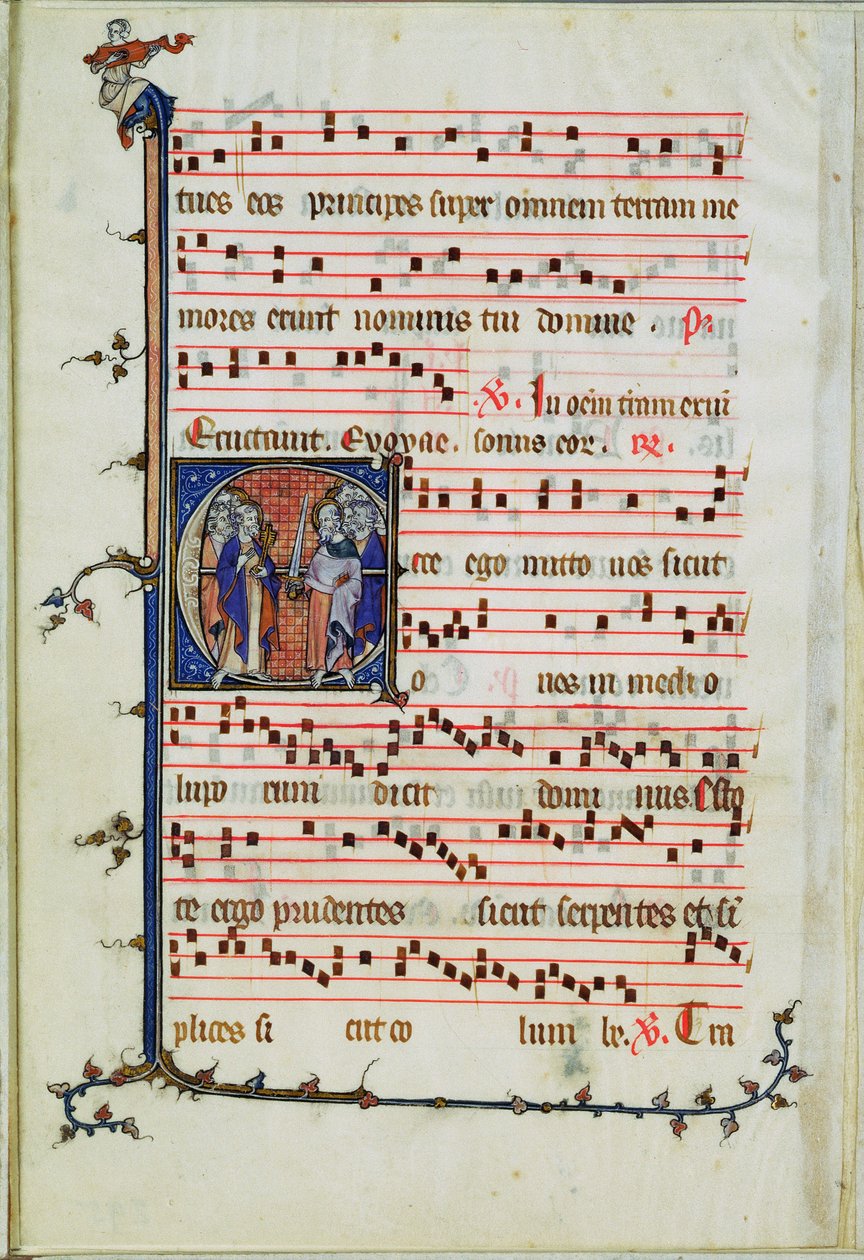 tues eos principes super omnem terram me
mores erunt nominis tui domine. ps.
℣. In oēm tr̄am exiuī
Eructauit. Euouae. sonus eor. ℟.
Ecce ego mitto uos sicut
o ues in medi o
lupo rum dicit domi nus. Esto
te ergo prudentes sicut serpentes et sī
plices si cut co lum be. ℣. Tra